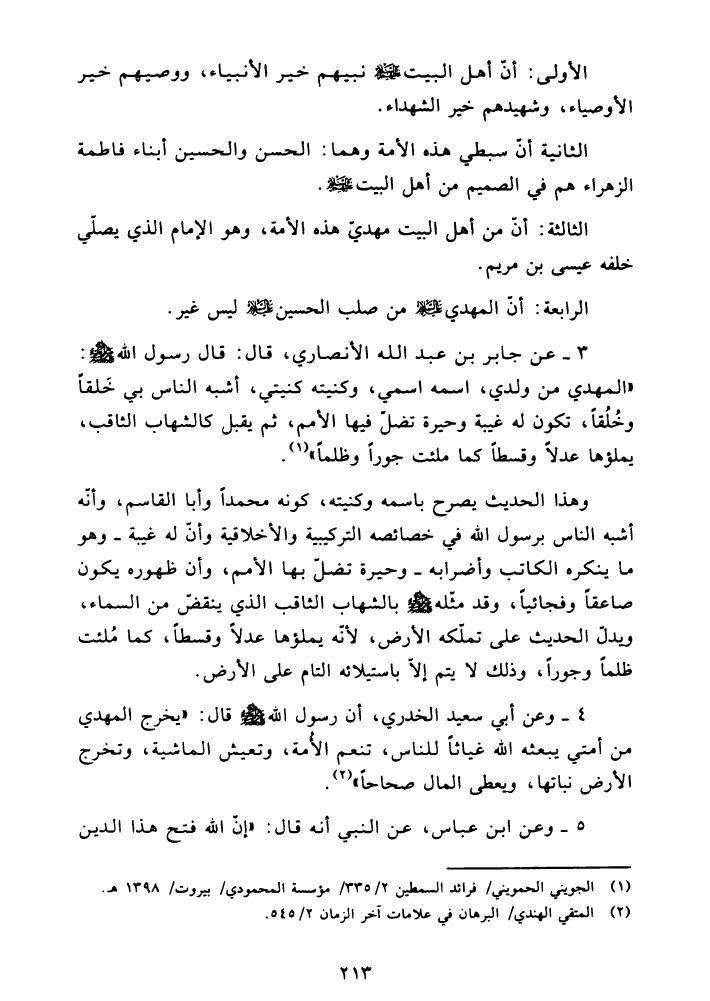 الأولى: أنّ أهل البيت نبيهم خير الأنبياء، ووصيهم خير
الأوصياء، وشهيدهم خير الشهداء.
الثانية أنّ سبطي هذه الأمة وهما: الحسن والحسين أبناء فاطمة
الزهراء هم في الصميم من أهل البيت.
الثالثة: أنّ من أهل البيت مهديّ هذه الأمة، وهو الإمام الذي يصلّي
خلفه عيسى بن مريم.
الرابعة: أنّ المهدي من صلب الحسين ليس غير.
٣ ـ عن جابر بن عبد الله الأنصاري، قال: قال رسول الله ﷺ:
«المهدي من ولدي، اسمه اسمي، وكنيته كنيتي، أشبه الناس بي خَلقاً
وخُلُقاً، تكون له غيبة وحيرة تضلّ فيها الأمم، ثم يقبل كالشهاب الثاقب،
يملؤها عدلاً وقسطاً كما ملئت جوراً وظلماً»(١).
وهذا الحديث يصرح باسمه وكنيته، كونه محمداً وأبا القاسم، وأنّه
أشبه الناس برسول الله في خصائصه التركيبية والأخلاقية وأنّ له غيبة ـ وهو
ما ينكره الكاتب وأضرابه ـ وحيرة تضلّ بها الأمم، وأن ظهوره يكون
صاعقاً وفجائياً، وقد مثّله ﷺ بالشهاب الثاقب الذي ينقضّ من السماء،
ويدلّ الحديث على تملّكه الأرض، لأنّه يملؤها عدلاً وقسطاً، كما مُلئت
ظلماً وجوراً، وذلك لا يتم إلاّ باستيلائه التام على الأرض.
٤ ـ وعن أبي سعيد الخدري، أن رسول الله ﷺ قال: «يخرج المهدي
من أمتي يبعثه الله غياثاً للناس، تنعم الأُمة، وتعيش الماشية، وتخرج
الأرض نباتها، ويعطى المال صحاحاً»(٢).
٥ ـ وعن ابن عباس، عن النبي أنه قال: «إنّ الله فتح هذا الدين
(١) الجويني الحمويني/ فرائد السمطين ٢/٣٣٥/ مؤسسة المحمودي/ بيروت/ ١٣٩٨ هـ.
(٢) المتقي الهندي/ البرهان في علامات آخر الزمان ٢/٥٤٥.
٢١٣